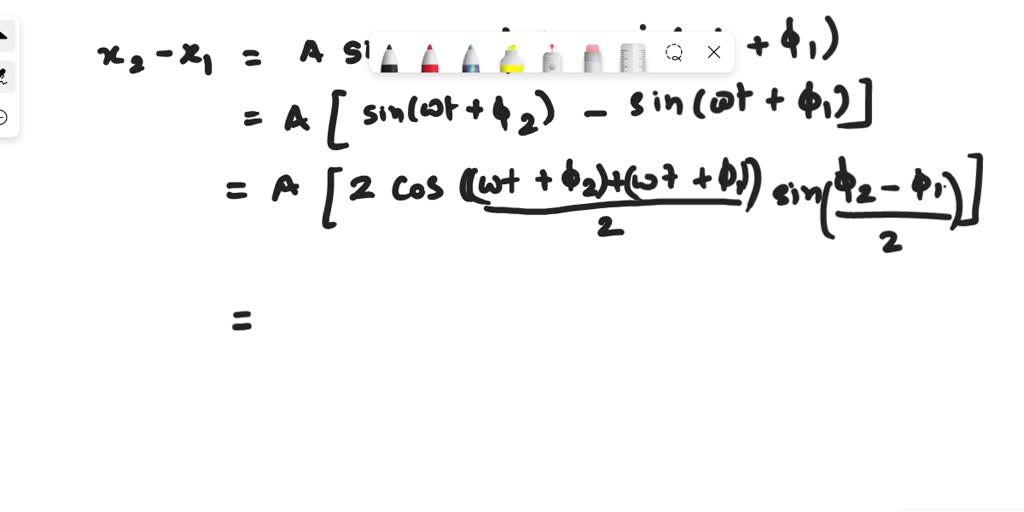 x₂ - x₁ = A + ϕ₁)
= A [ sin(ωt + ϕ₂) - sin(ωt + ϕ₁) ]
= A [ 2 cos ((ωt + ϕ₂)+(ωt + ϕ₁))/2 sin(ϕ₂ - ϕ₁)/2 ]
=